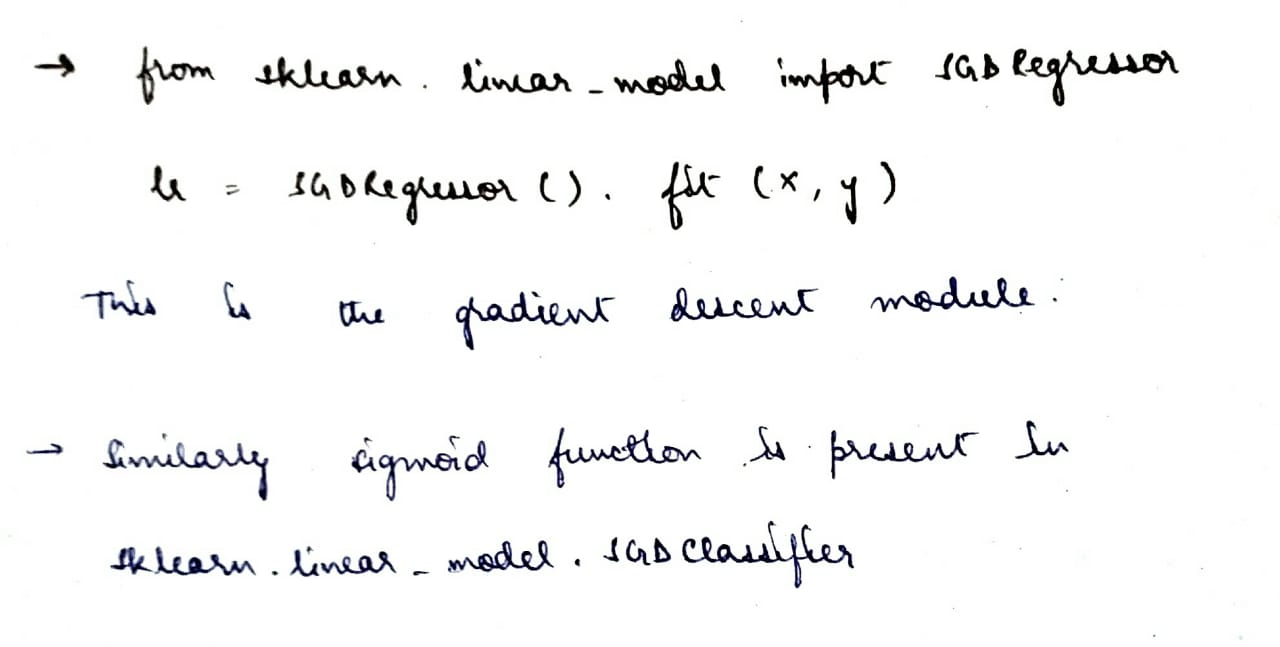 → from sklearn.linear_model import SGDRegressor
lr = SGDRegressor().fit(x, y)
This is the gradient descent module.
→ Similarly sigmoid function is present in
sklearn.linear_model.SGDClassifier